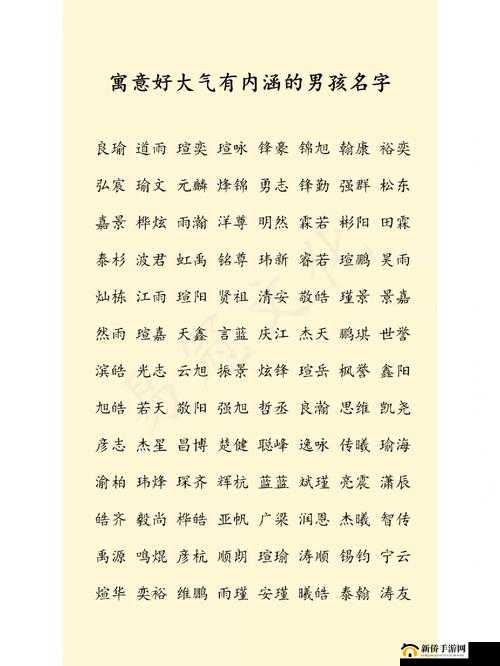 寓意好大气有内涵的男孩名字
良瑜 道雨 瑄奕 瑄咏 锋豪 锦旭 翰康 裕奕
弘宸 瑜文 元麟 烽锦 勇志 锋勤 强群 松东
嘉景 桦炫 雨瀚 洋尊 明然 霖若 彬阳 田霖
泰杉 波君 虹禹 铭尊 玮新 睿若 瑄鹏 昊雨
灿栋 江雨 瑄阳 贤祖 清安 敬皓 瑾景 景嘉
然雨 瑄嘉 天鑫 言蓝 庆江 杰天 鹏琪 世誉
滨皓 光志 云旭 振景 炫锋 瑄岳 枫誉 鑫阳
旭皓 若天 敬阳 强旭 哲丞 良瀚 思维 凯尧
彦志 杰星 昌博 楚健 聪峰 逸咏 传曦 瑜海
渝柏 玮烽 琛齐 辉杭 蓝蓝 斌瑾 亮震 潇辰
皓齐 毅尚 桦皓 亚帆 广梁 润恩 杰曦 智传
禹源 鸣焜 彦杭 顺朗 瑄瑜 涛顺 锡钧 宁云
煊华 奕裕 维鹏 雨瑾 安瑾 曦皓 泰翰 涛友
新侨手游网